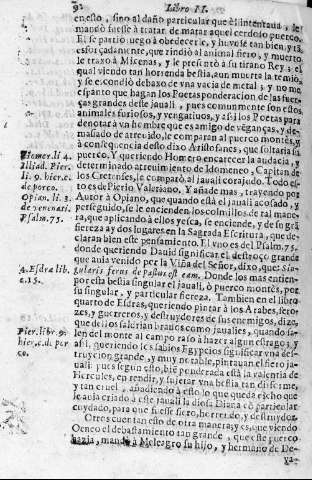 92 Libro II.
en esto, sino al daño particular que el intentaua, le
mandó fuesse à tratar de matar aquel cerdoso puerco.
El se partio luego à obedecerle, y huuose tan bien, y tã
esforçadamente, que rindio al animal fiero, y muerto
le traxo à Micenas, y le presentò a su tirano Rey; el
qual viendo tan horrenda bestia, aun muerta la temio,
y se escondio debaxo de vna vacia de metal; y no me
espanto que hagan los Poetas ponderacion de las fuer
ças grandes deste jauali, pues comunmente son estos
animales furiosos, y vengatiuos, y assi los Poetas para
denotar à vn hombre que es amigo de vengãças, y de-
masiado de atreuido, le comparan al puerco montés, y
à consequencia desto dixo Aristofanes, que soltaria su
puerco. Y queriendo Homero encarecer la audacia, y
determinado atreuimiento de Idomeneo, Capitan de
los Cretenses, le comparò al jauali corajudo. Todo es-
to es de Pierio Valeriano. Y añade mas, trayendo por
Autor à Opiano, que quando està el jauali acosado, y
perseguido, se le encienden los colmillos de tal mane-
ra, que aplicando à ellos yesca, se enciende, y de su grã
fiereza ay dos lugares en la Sagrada Escritura, que de-
claran bien este pensamiento. El vno es del Psalm. 75.
donde queriendo Dauid significar el destroço grande
que auia venido por la Viña del Señor, dixo, que: Sin-
gularis ferus depastus est eam. Donde los mas entien-
por esta bestia singular el jauali, ò puerco montés, por
su singular, y particular fiereza. Tambien en el libro
quarto de Esdras, queriendo pintar à los Arabes, fero-
zes, y guerreros, y destruydores de sus enemigos, dize,
que dellos saldrian brauos como jaualies, quando sa-
len del monte al campo raso à hazer algun estrago; y
assi, queriendo los sabios Egypcios significar vna des-
truycion grande, y muy notable, pintauan el fiero ja-
uali: pues segun esto, biē ponderada està la valentia de
Hercules, en rendir, y sujetar vna bestia tan disforme,
y tan cruel, añadiendo à esto lo que queda dicho que
le auia criado à este jauali la diosa Diana cõ particular
cuydado, para que fuesse fiero, horrendo, y destruydor.
Otros cuentan esto de otra manera; y es, que viendo
Oeneo el debastamiento tan grande, que este puerco
hazia, mandò à Meleagro su hijo, y hermano de De-
Homer. li 4.
Iliad. Pier.
li. 9. hier. c.
de porco.
Opian. li. 3.
de venenati.
Psalm. 75.
4. Esdrae lib.
c. 15.
Pier. libr. 9.
hier, c. d. por
co.